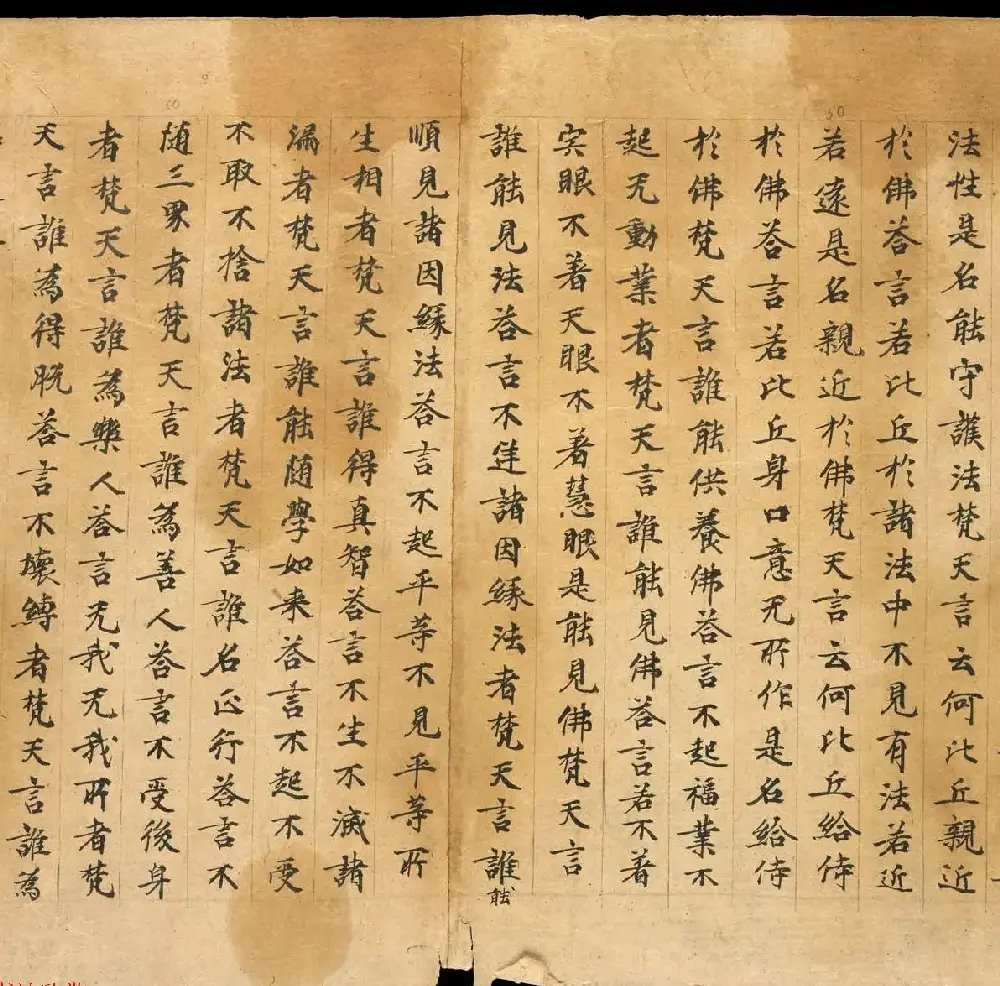 法性是名能守護法梵天言云何比丘親近
於佛荅言若比丘於諸法中不見有法若近
若遠是名親近於佛梵天言云何比丘給侍
於佛荅言若比丘身口意无所作是名給侍
於佛梵天言誰能供養佛荅言不起福業不
起无動業者梵天言誰能見佛荅言若不著
宍眼不著天眼不著慧眼是能見佛梵天言
誰能見法荅言不逆諸因緣法者梵天言誰能
順見諸因緣法荅言不起平等不見平等所
生相者梵天言誰得真智荅言不生不滅諸
漏者梵天言誰能随學如来荅言不起不受
不取不捨諸法者梵天言誰名正行荅言不
随三界者梵天言誰為善人荅言不受後身
者梵天言誰為樂人荅言无我无我所者梵
天言誰為得脱荅言不壞縛者梵天言誰為